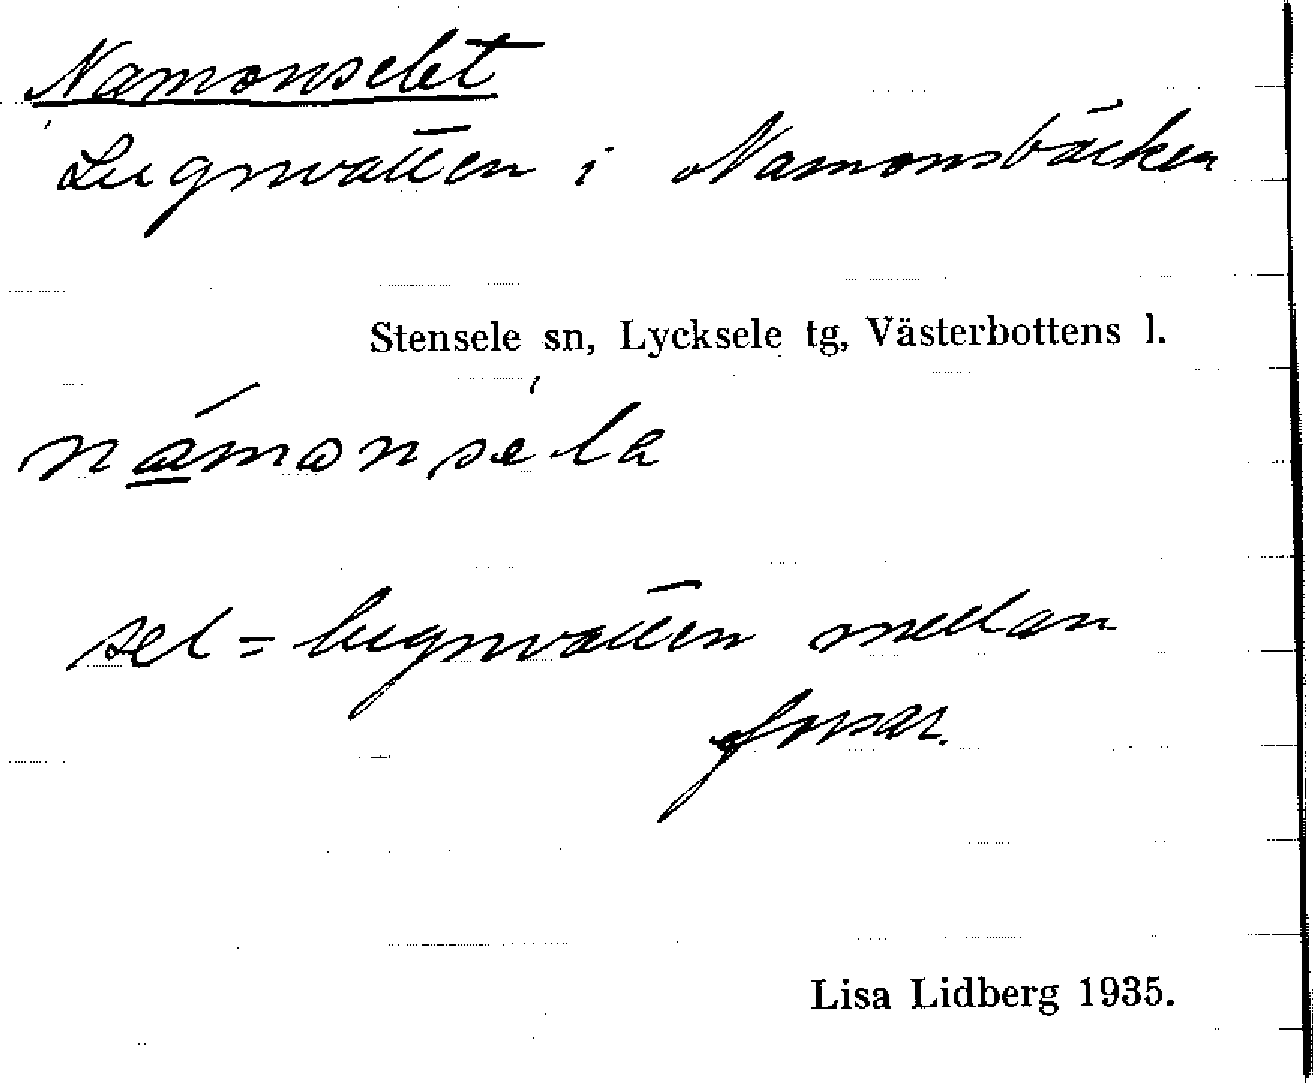 Namonselet
Lugnvatten i Namonsbäcken
Stensele sn, Lycksele tg, Västerbottens l.
námonsela
sel = lugnvatten mellan
forsar.
Lisa Lidberg 1935.